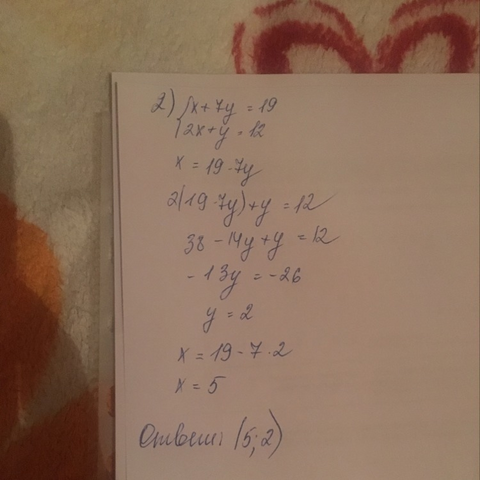 2) {x+7y = 19
{2x+y = 12
x = 19-7y
2(19-7y)+y = 12
38-14y+y = 12
-13y = -26
y = 2
x = 19-7·2
x = 5
Ответ: (5;2)